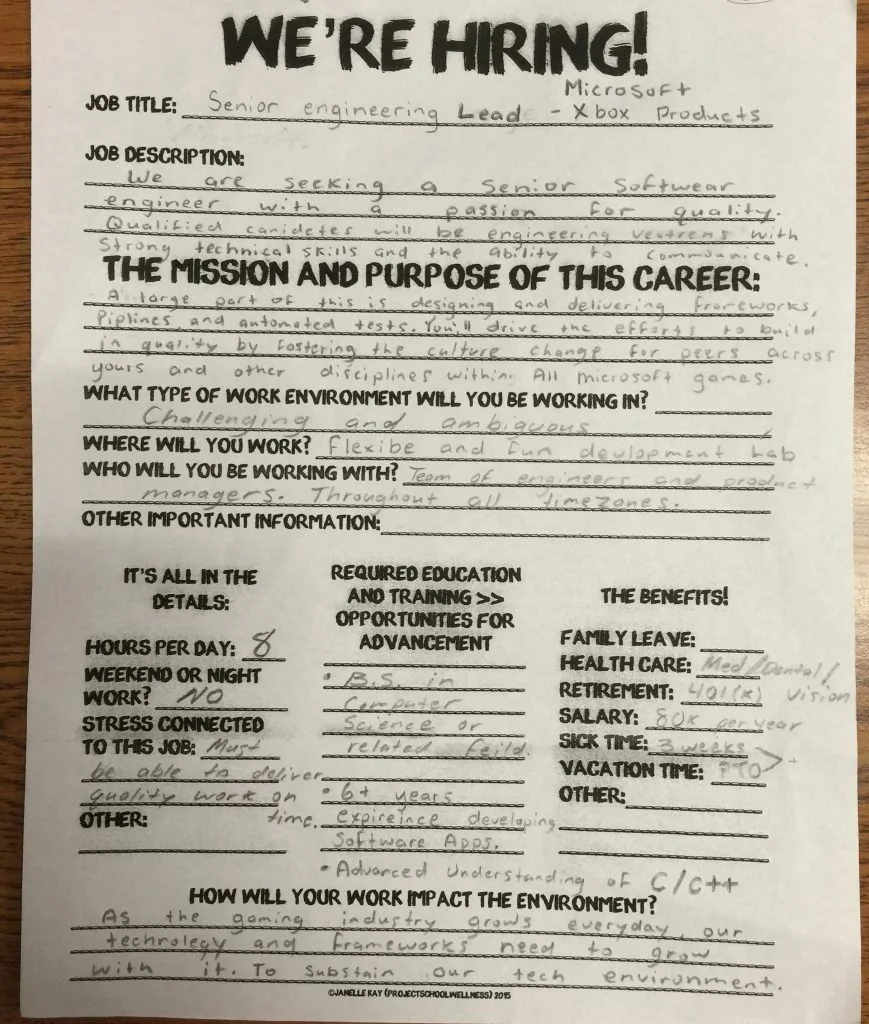 WE'RE HIRING!
Microsoft
JOB TITLE: Senior engineering Lead - Xbox Products
JOB DESCRIPTION:
We are seeking a Senior Softwear
engineer with a passion for quality.
Qualified canidetes will be engineering veatrens with
Strong technical skills and the ability to communicate.
THE MISSION AND PURPOSE OF THIS CAREER:
A large part of this is designing and delivering frameworks,
Piplines, and automated tests. You'll drive the efforts to build
in quality by fostering the culture change for peers across
yours and other disciplines within All microsoft games.
WHAT TYPE OF WORK ENVIRONMENT WILL YOU BE WORKING IN?
Challenging and ambiguous
WHERE WILL YOU WORK? Flexibe and fun devlopment Lab
WHO WILL YOU BE WORKING WITH? Team of engineers and product
managers. Throughout all timezones.
OTHER IMPORTANT INFORMATION:
IT'S ALL IN THE
DETAILS:
HOURS PER DAY: 8
WEEKEND OR NIGHT
WORK? NO
STRESS CONNECTED
TO THIS JOB: Must
be able to deliver
quality work on
time.
OTHER:
REQUIRED EDUCATION
AND TRAINING >>
OPPORTUNITIES FOR
ADVANCEMENT
• B.S. in
Computer
Science or
related feild.
• 6+ years
expireince developing
Software Apps.
• Advanced Understanding of C/C++
THE BENEFITS!
FAMILY LEAVE:
HEALTH CARE: Med/Dental/
Vision
RETIREMENT: 401(K)
SALARY: 80K per year
SICK TIME: 3 weeks
VACATION TIME: PTO
OTHER:
HOW WILL YOUR WORK IMPACT THE ENVIRONMENT?
As the gaming industry grows everyday, our
technology and frameworks need to grow
with it. To Substain our tech environment.
©JANELLE KAY (PROJECTSCHOOLWELLNESS) 2015